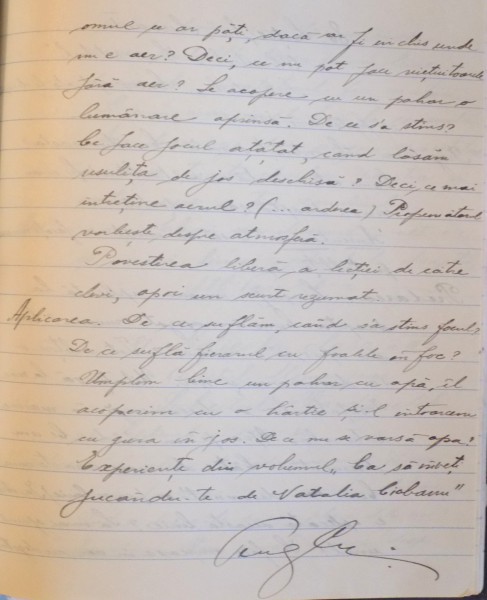 omul ce ar păți, dacă ar fi închis unde
nu e aer? Deci, ce nu pot face viețuitoarele
fără aer? Se acopere cu un pahar o
lumânare aprinsă. De ce s'a stins?
Ce face focul ațâțat, când lăsăm
usulița de jos deschisă? Deci, ce mai
întreține aerul? (... arderea) Propunătorul
vorbește despre atmosferă.
Povestirea liberă a lecției de către
elevi, apoi un scurt rezumat.
Aplicarea. De ce suflăm, când s'a stins focul?
De ce suflă fierarul cu foalele în foc?
Umplem bine un pahar cu apă, îl
acoperim cu o hârtie și-l întoarcem
cu gura în jos. De ce nu se varsă apa?
Experiențe din volumul „Ca să înveți
jucându-te de Natalia Ciobanu"